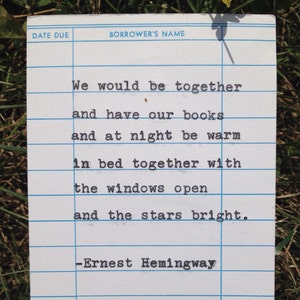 DATE DUE BORROWER'S NAME
We would be together
and have our books
and at night be warm
in bed together with
the windows open
and the stars bright.
-Ernest Hemingway